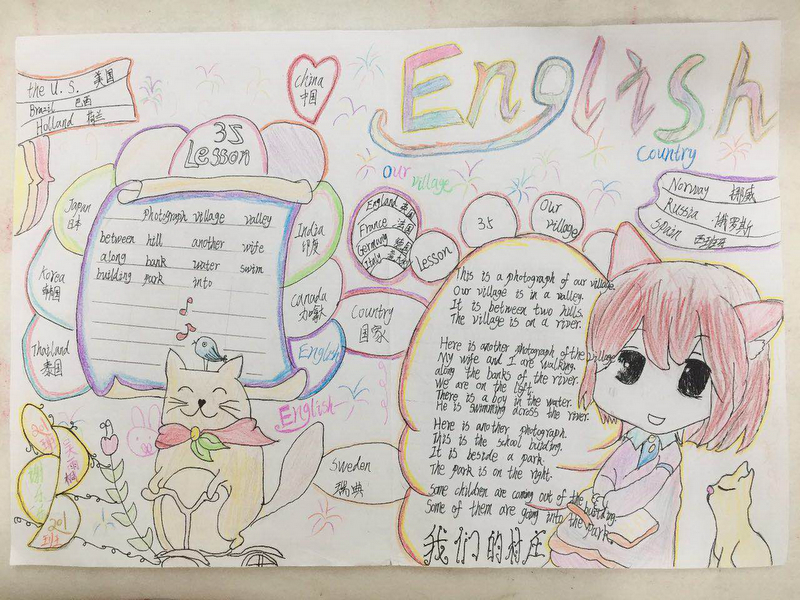 English
Country
Our
village
the U.S. 美国
Brazil 巴西
Holland 荷兰
China
中国
35
Lesson
Photograph village valley
between hill another wife
along bank water swim
building park into
Japan
日本
Korea
韩国
Thailand
泰国
India
印度
Canada
加拿大
English
English
England 英国
France 法国
Germany 德国
Lesson
35
Our
village
Country
国家
Sweden
瑞典
Norway 挪威
Russia 俄罗斯
Spain 西班牙
This is a photograph of our village.
Our village is in a valley.
It is between two hills.
The village is on a river.
Here is another photograph of the village.
My wife and I are walking.
along the banks of the river.
We are on the left.
There is a boy in the water.
He is swimming across the river.
Here is another photograph.
This is the school building.
It is beside a park.
The park is on the right.
Some children are coming out of the building.
Some of them are going into the park.
我们的村庄
201